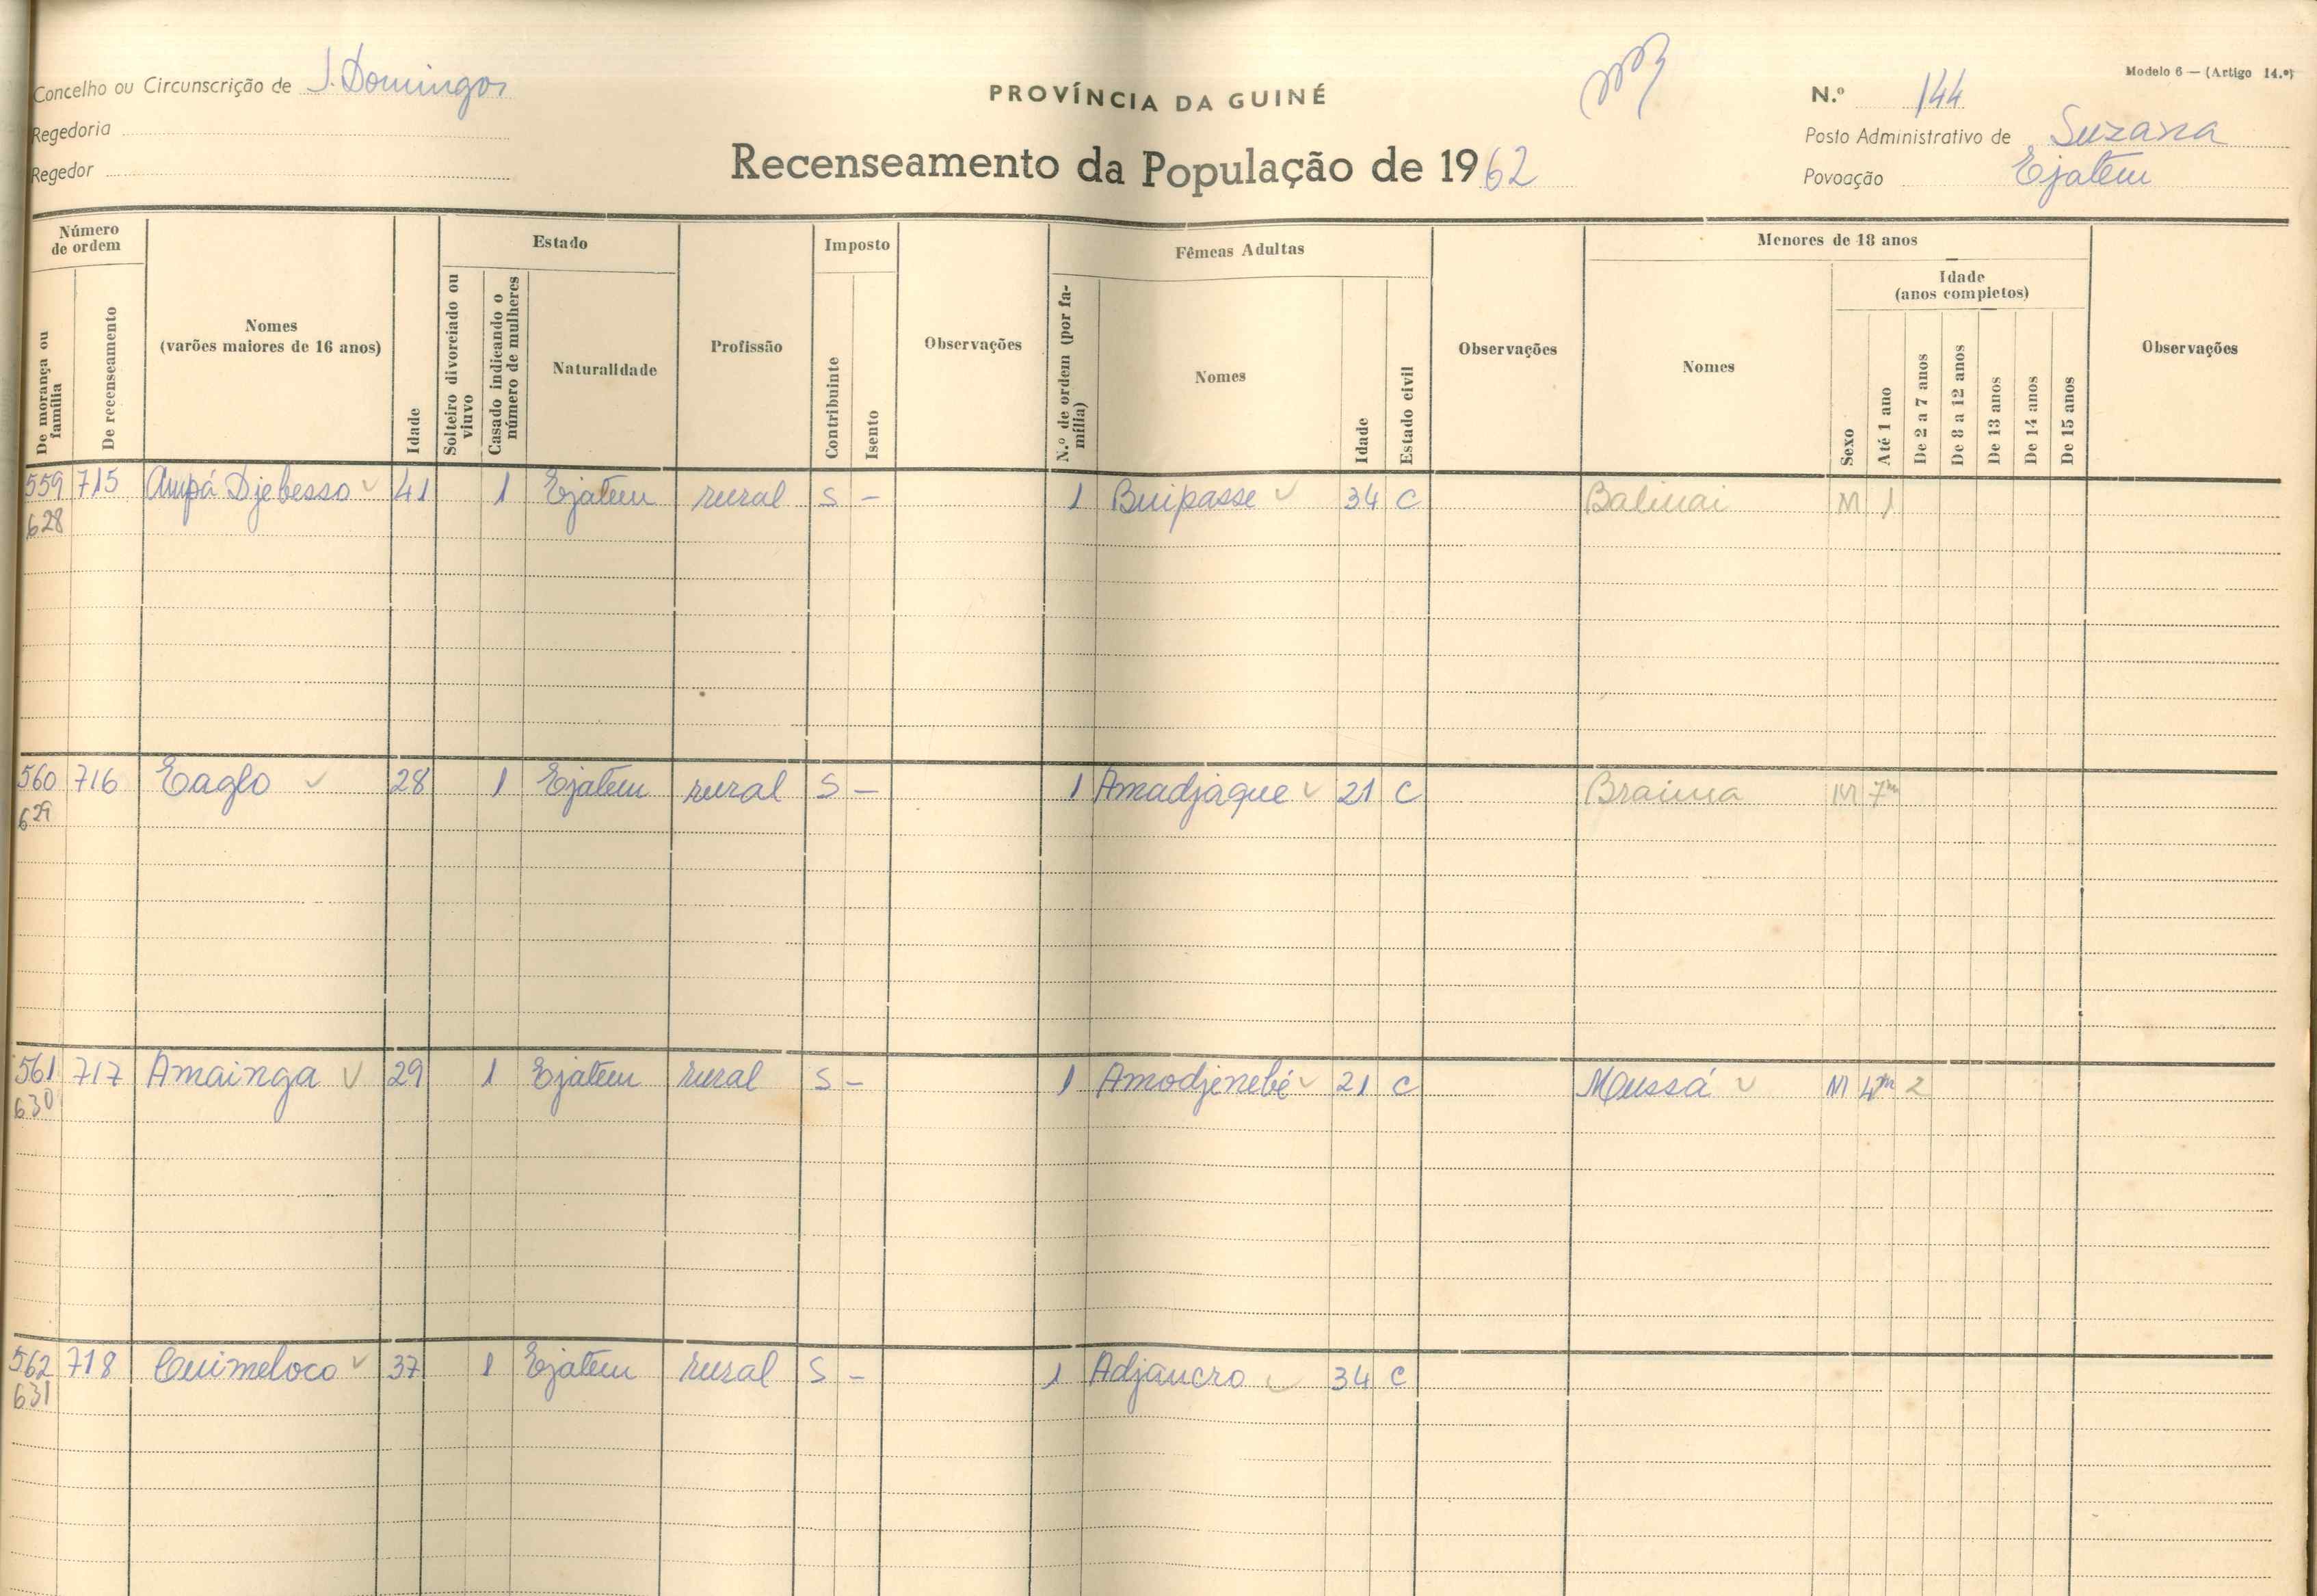 Modelo 6 — (Artigo 14.º)
Concelho ou Circunscrição de S. Domingos
PROVÍNCIA DA GUINÉ
N.º 144
Regedoria
Posto Administrativo de Suzana
Regedor
Recenseamento da População de 1962
Povoação Ejatem
Número de ordem
Estado
Imposto
Fêmeas Adultas
Menores de 18 anos
Idade (anos completos)
De morança ou família
De recenseamento
Nomes (varões maiores de 16 anos)
Idade
Solteiro divorciado ou viuvo
Casado indicando o número de mulheres
Naturalidade
Profissão
Contribuinte
Isento
Observações
N.º de ordem (por família)
Nomes
Idade
Estado civil
Observações
Nomes
Sexo
Até 1 ano
De 2 a 7 anos
De 8 a 12 anos
De 13 anos
De 14 anos
De 15 anos
Observações
559 715 Ampá Djebesso 41 1 Ejatem rural S — 1 Buipasse 34 C Balinai M 1
628
560 716 Eaglo 28 1 Ejatem rural S — 1 Amadjaque 21 C Braima M 7m
629
561 717 Amainga 29 1 Ejatem rural S — 1 Amodjenebé 21 C Mussá M 4m 2
630
562 718 Cuimeloco 37 1 Ejatem rural S — 1 Adjancro 34 C
631